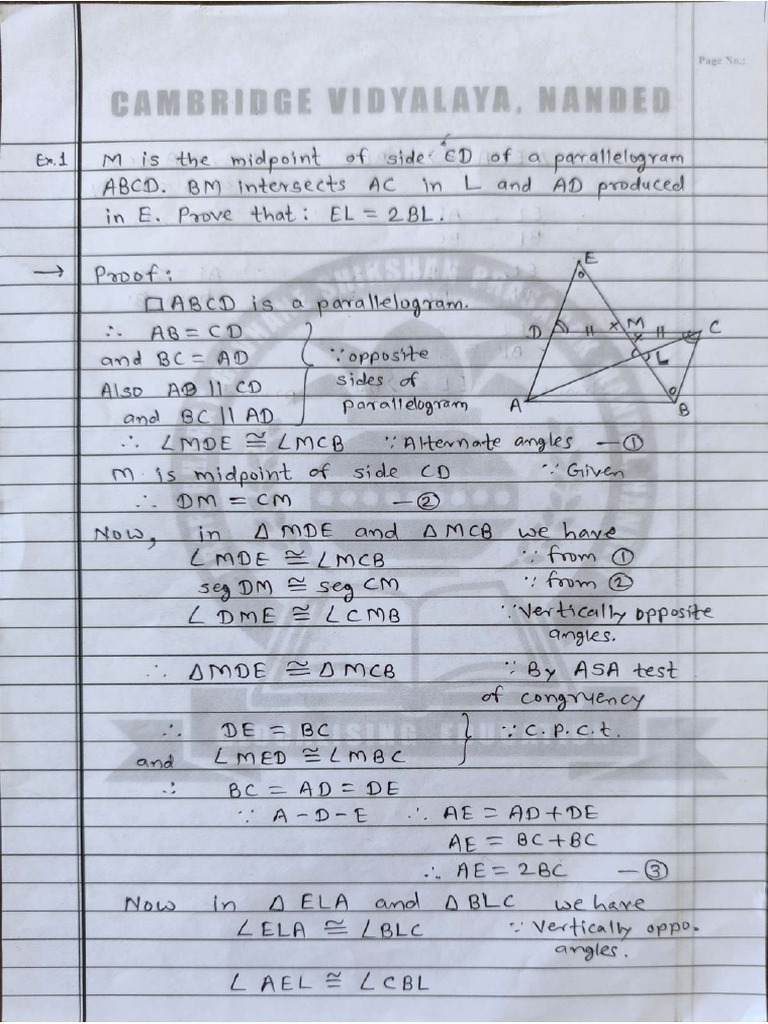 Page No.:
CAMBRIDGE VIDYALAYA, NANDED
Ex.1 M is the midpoint of side CD of a parallelogram
ABCD. BM intersects AC in L and AD produced
in E. Prove that: EL = 2BL.
→ Proof:
□ABCD is a parallelogram.
∴ AB = CD
and BC = AD ∵ opposite
Also AB || CD sides of
and BC || AD parallelogram
E
D M C
L
A B
∴ ∠MDE ≅ ∠MCB ∵ Alternate angles —①
M is midpoint of side CD ∵ Given
∴ DM = CM —②
Now, in Δ MDE and Δ MCB we have
∠ MDE ≅ ∠MCB ∵ from ①
seg DM ≅ seg CM ∵ from ②
∠ DME ≅ ∠CMB ∵ Vertically opposite
angles.
∴ ΔMDE ≅ Δ MCB ∵ By ASA test
of congruency
∴ DE = BC ∵ C.P.C.t.
and ∠MED ≅ ∠MBC
∴ BC = AD = DE
∵ A-D-E ∴ AE = AD+DE
AE = BC+BC
∴ AE = 2BC —③
Now in Δ ELA and Δ BLC we have
∠ELA ≅ ∠BLC ∵ Vertically oppo.
angles.
∠ AEL ≅ ∠CBL